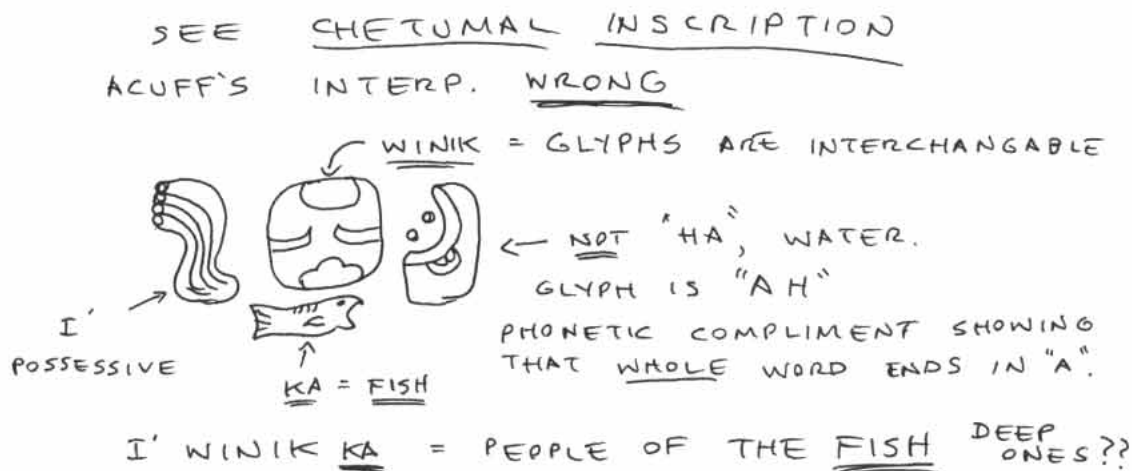 SEE CHETUMAL INSCRIPTION
ACUFF'S INTERP. WRONG
WINIK = GLYPHS ARE INTERCHANGABLE
← NOT "HA", WATER.
GLYPH IS "AH"
PHONETIC COMPLIMENT SHOWING
THAT WHOLE WORD ENDS IN "A".
I'
POSSESSIVE
KA = FISH
I' WINIK KA = PEOPLE OF THE FISH DEEP ONES??